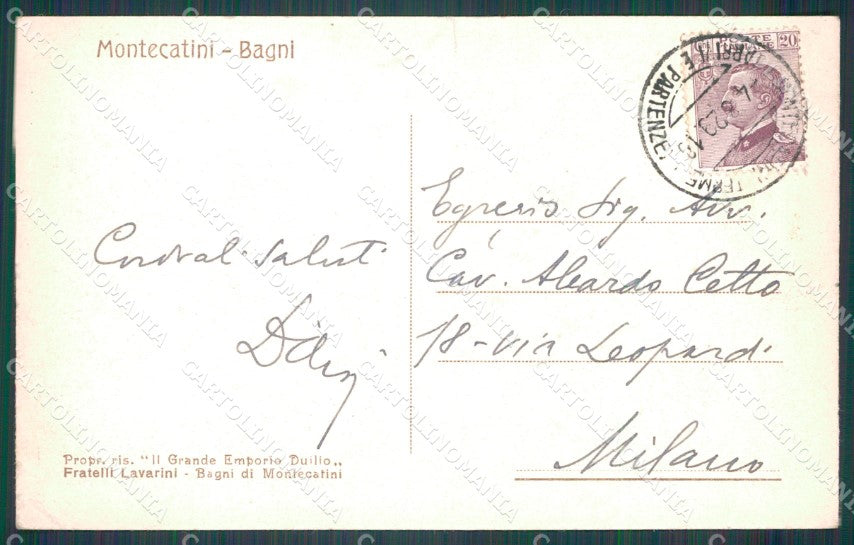 Montecatini - Bagni
POSTE 20
PARTENZE)
Egregio Sig. Avv.
Cav. Abardo Cetto
18 - Via Leopardi
Milano
Cordiali saluti
Propr. ris. "Il Grande Emporio Duilio„
Fratelli Lavarini - Bagni di Montecatini
CARTOLINOMANIA